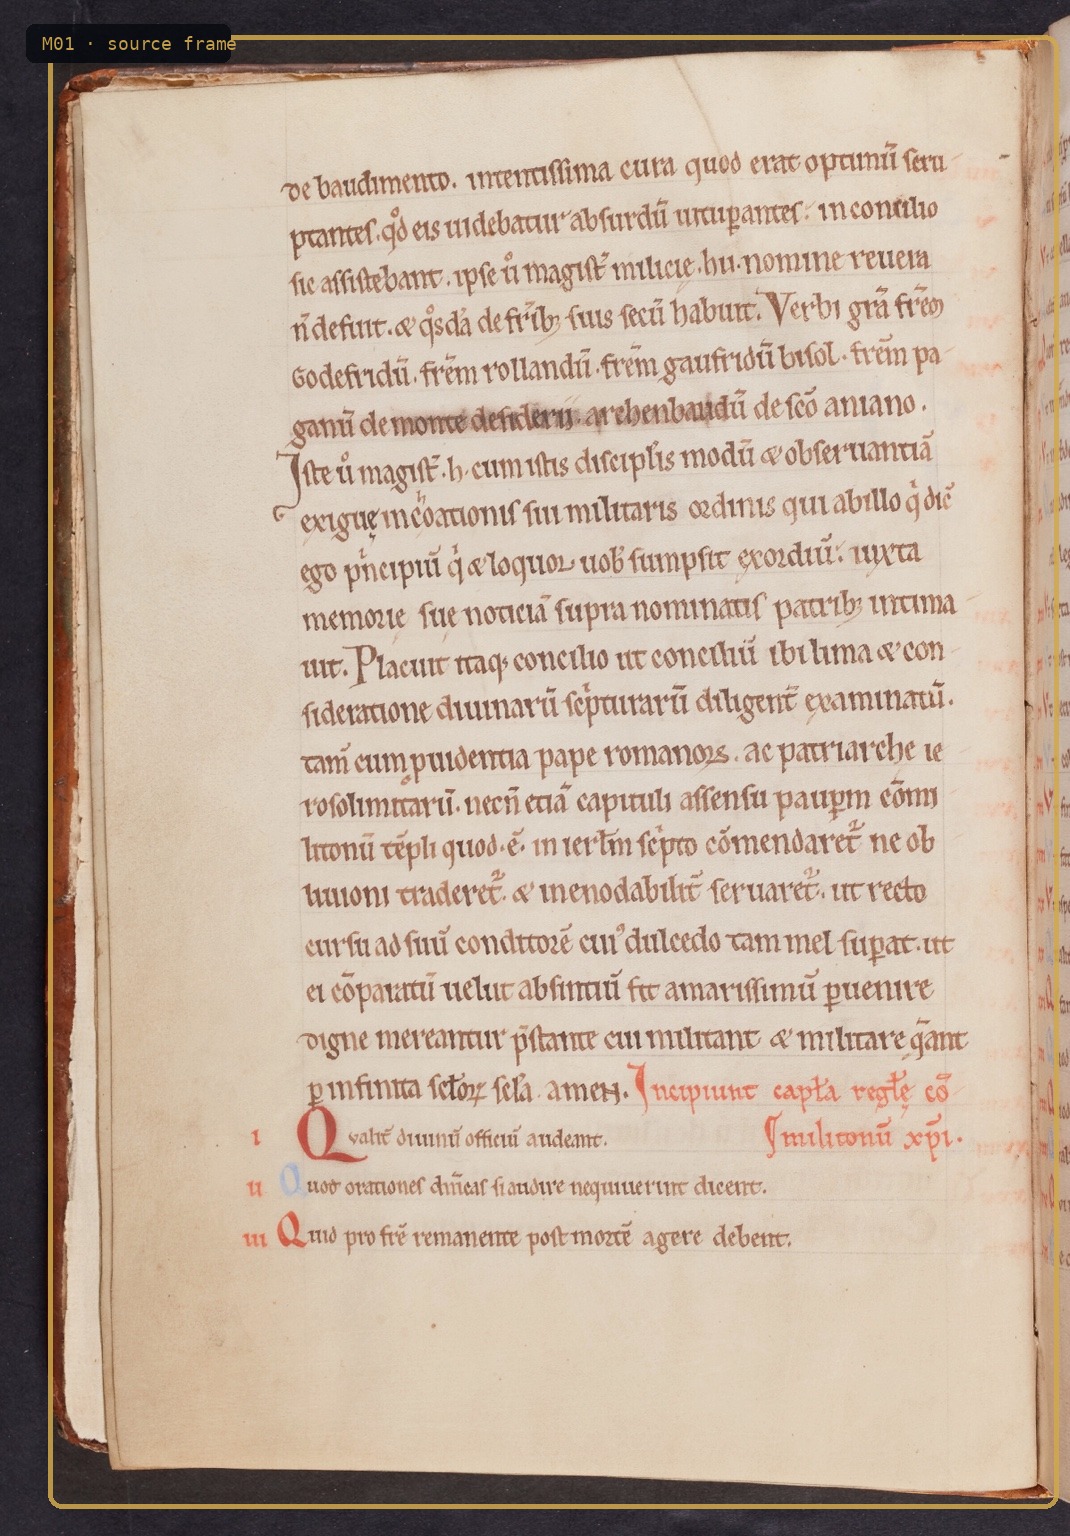 M01 · source frame
de baudimento. intentissima cura quod erat optimū scru
ptantes. qd̊ eis uidebatur absurdū uitup̲antes. in concilio
sic assistebant. ipse ů magist̄ milicię .hu. nomine reuera
n̄ defuit. & qͦsdā de fr̄ibꝫ suis secū habuit. Verbi grā fr̄em
Godefridū. fr̄em rollandū. fr̄em gaufridū bisol. fr̄em pa
ganū de monte desiderij. archenbaudū de sc̄o aniano.
Iste ů magist̄ .h. cum istis discipl̄is modū & obseruantiā
exiguę inchoationis sui militaris ordinis qui ab illo qͥ dic̄
ego pͥncipiū qͥ & loquor uob̄ sumpsit exordiū. iuxta
memorię suę noticiā supra nominatis patribꝫ intima
uit. Placuit itaqꝫ concilio ut consiliū ibi lima & con
sideratione diuinarū scͥpturarū diligent̄ examinatū.
tam̄ cum ꝓuidentia pape romanoꝝ. ac patriarche ie
rosolimitarū. necn̄ etiā capituli assensu paup̲m cōmi
litonū tēpli quod .ē. in ierl̄m scͥpto cōmendaret᷑ ne ob
liuioni traderet᷑. & inenodabilit̄ seruaret᷑. ut recto
cursu ad suū conditorē cuiꝰ dulcedo tam mel sup̲at. ut
ei cōparatū uelut absintiū sit amarissimū ꝑuenire
digne mereantur p̄stante cui militant & militare q̄ant
ꝑ infinita sc̄loꝝ sc̄la. amen. Incipiunt capl̄a regl̄ę cō
militonū xp̄i.
i Qvalit̄ diuinū officiū audeant.
ii Quot orationes dn̄icas si audire nequiuerint dicent.
iii Quid pro fr̄e remanente post mortē agere debent.